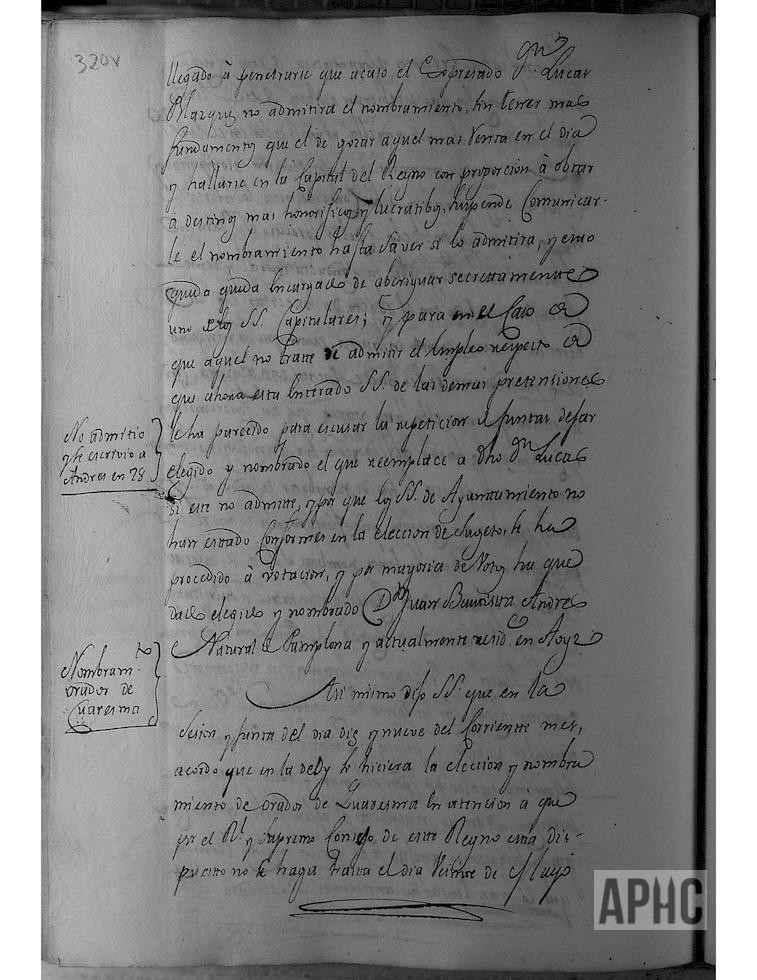 320v
llegado à penetrarse que acaso el Expresado Dn. Lucas
Marquez no admitira el nombramiento, sin tener mas
fundamento que el de gozar aquel mas Venta en el dia
y hallarse en la Capital del Reyno con proporcion à obtar
a destinos mas honorificos y lucratibos, suspende Comunicar-
le el nombramiento hasta saver si lo admitira, y esto
queda Encargado de aberiguar secretamente
uno de los SS. Capitulares; y para en el Caso de
que aquel no trate de admitir el Empleo respecto de
que ahora esta Enterado SS. de las demas pretensiones
le ha parecido para escusar la repeticion de Juntas dejar
elegido y nombrado el que reemplace a dho Dn. Lucas
si este no admite, y por que los SS. de Ayuntamiento no
han estado Conformes en la eleccion de Sugeto, se ha
procedido à votacion, y por mayoria de Votos ha que
dado elegido y nombrado Dn. Juan Bautista Andres
Natural de Pamplona y actualmente resid. en Aoyz
No admitio
y se escrivio a
Andres en 28
Nombramto.
orador de
Cuaresma
Asi mismo dijo SS. que en la
Sesion y Junta del dia diez y nueve del Corriente mes,
acordo que en la de oy se hiciera la eleccion y nombra
miento de orador de Quaresma En atencion à que
por el Rl. y Supremo Consejo de este Reyno esta dis-
puesto no se haga hasta el dia Veinte de Mayo
APHC